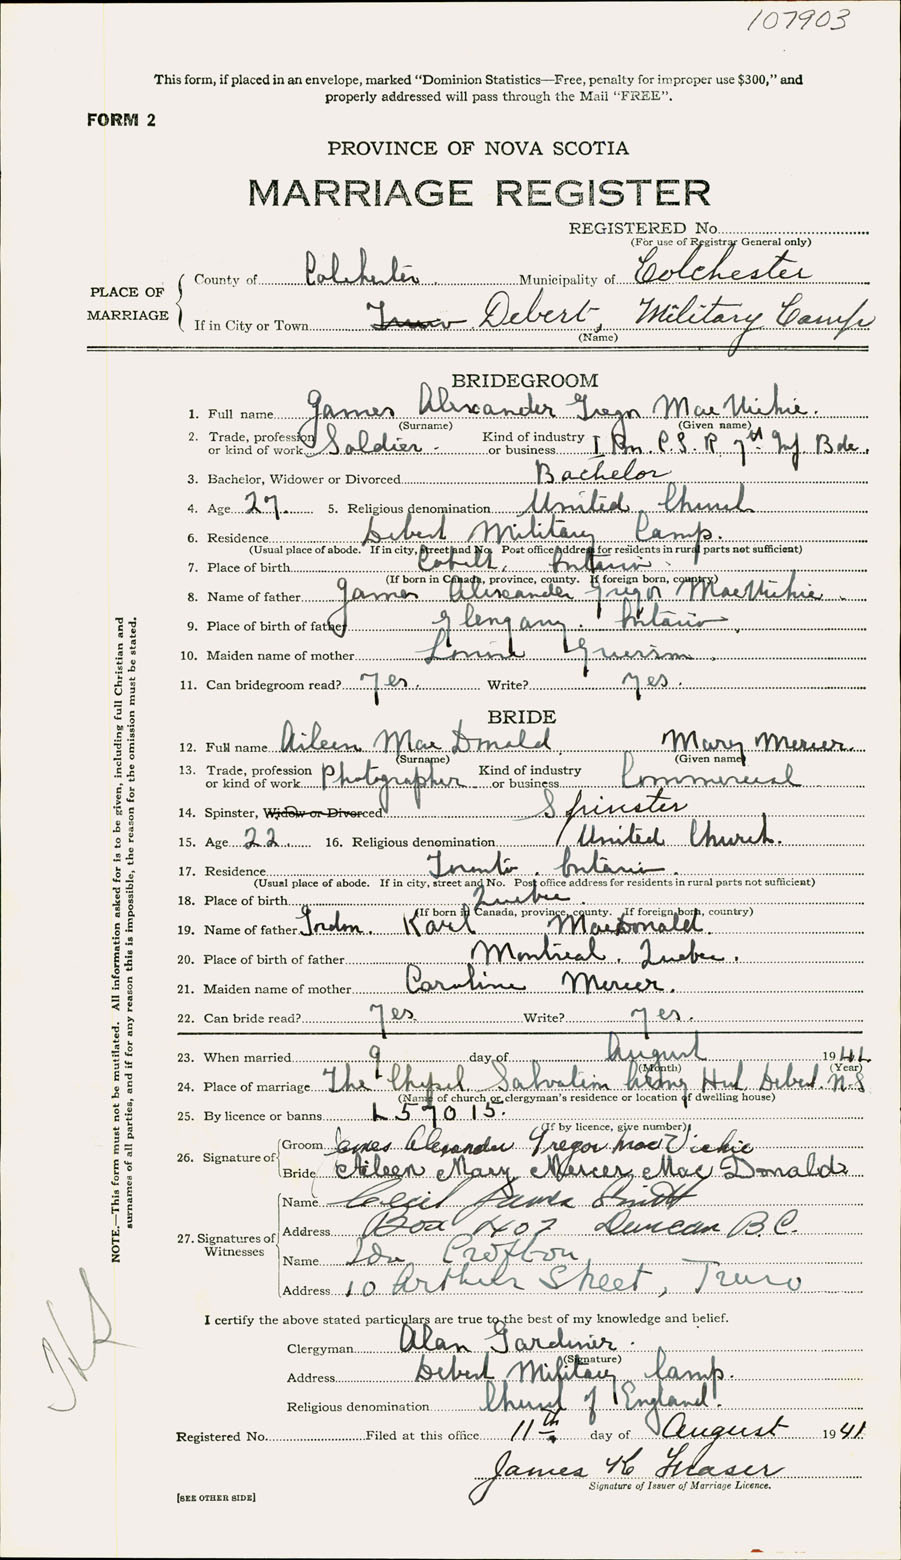 107903
This form, if placed in an envelope, marked "Dominion Statistics—Free, penalty for improper use $300," and
properly addressed will pass through the Mail "FREE".
FORM 2
PROVINCE OF NOVA SCOTIA
MARRIAGE REGISTER
REGISTERED No.
(For use of Registrar General only)
PLACE OF MARRIAGE
County of Colchester Municipality of Colchester
If in City or Town Truro Debert, Military Camp
(Name)
BRIDEGROOM
1. Full name James Alexander Gregor MacVichie.
(Surname) (Given name)
2. Trade, profession or kind of work Soldier - Kind of industry or business I Bn. P.S.R 7th Inf. Bde.
3. Bachelor, Widower or Divorced Bachelor
4. Age 27. 5. Religious denomination United Church
6. Residence Debert Military Camp.
(Usual place of abode. If in city, street and No. Post office address for residents in rural parts not sufficient)
7. Place of birth Cobalt, Ontario.
(If born in Canada, province, county. If foreign born, country)
8. Name of father James Alexander Gregor MacVichie.
9. Place of birth of father Glengarry. Ontario
10. Maiden name of mother Louise
11. Can bridegroom read? Yes. Write? Yes.
BRIDE
12. Full name Aileen MacDonald Mary Mercer.
(Surname) (Given name)
13. Trade, profession or kind of work Photographer Kind of industry or business Commercial
14. Spinster, Widow or Divorced Spinster
15. Age 22. 16. Religious denomination United Church.
17. Residence Toronto. Ontario.
(Usual place of abode. If in city, street and No. Post office address for residents in rural parts not sufficient)
18. Place of birth Quebec.
(If born in Canada, province, county. If foreign born, country)
19. Name of father Gordon. Karl MacDonald.
20. Place of birth of father Montreal. Quebec.
21. Maiden name of mother Caroline Mercer.
22. Can bride read? Yes. Write? Yes.
23. When married 9 day of August 1941
(Month) (Year)
24. Place of marriage The Chapel Salvation Army Hut Debert. N.S
(Name of church or clergyman's residence or location of dwelling house)
25. By licence or banns L 57015.
(If by licence, give number)
26. Signature of
Groom James Alexander Gregor MacVichie
Bride Aileen Mary Mercer MacDonald
27. Signatures of Witnesses
Name Cecil James Smith
Address Box 407 Duncan B.C.
Name Crofton
Address 10 Arthur Street, Truro
I certify the above stated particulars are true to the best of my knowledge and belief.
Clergyman Alan Gardiner.
(Signature)
Address Debert Military Camp.
Religious denomination Church of England.
Registered No. Filed at this office 11th day of August 1941
James K Fraser
Signature of Issuer of Marriage Licence.
[SEE OTHER SIDE]
NOTE.—This form must not be mutilated. All information asked for is to be given, including full Christian and
surnames of all parties, and if for any reason this is impossible, the reason for the omission must be stated.